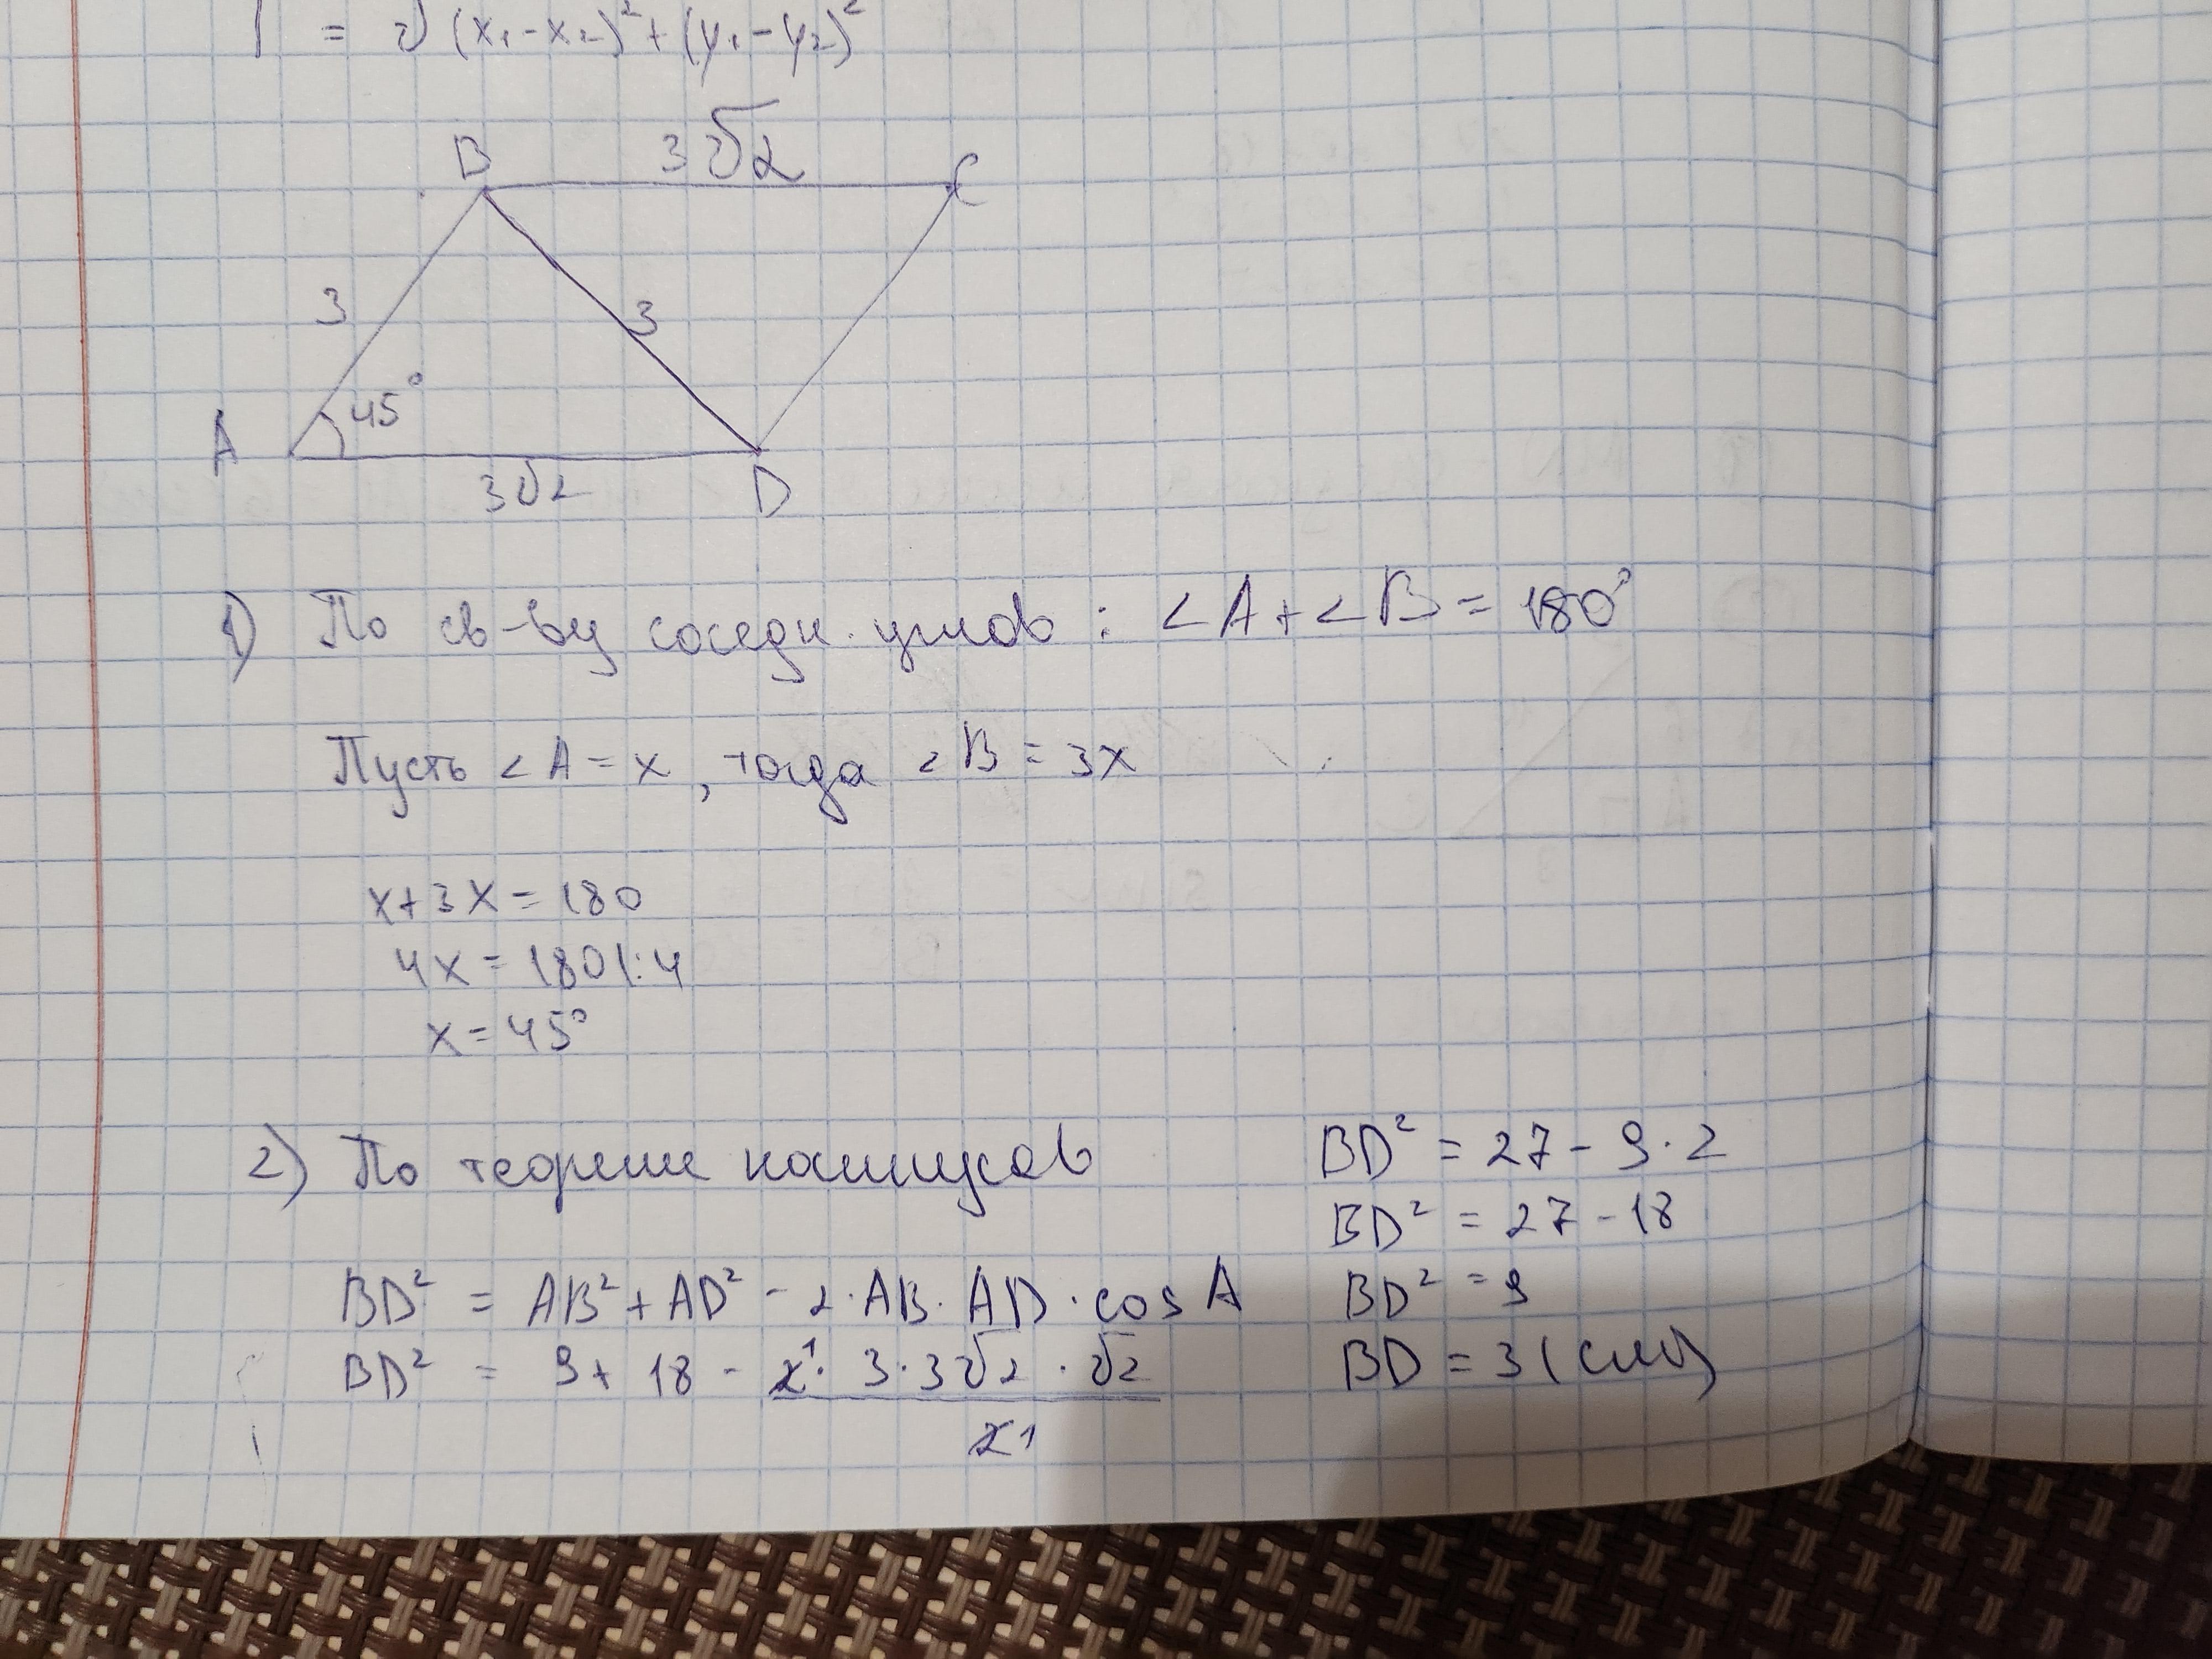 = √(x₁-x₂)²+(y₁-y₂)²
B 3√2 C
3 3
A 45°
3√2 D
1) По св-ву соседн. углов : ∠A+∠B = 180°
Пусть ∠A = x, тогда ∠B = 3x
x+3x = 180
4x = 180 |:4
x = 45°
2) По теореме косинусов
BD² = AB² + AD² - 2·AB·AD·cos A
BD² = 9 + 18 - 2¹·3·3√2·√2
2 1
BD² = 27 - 9·2
BD² = 27 - 18
BD² = 9
BD = 3 (см)